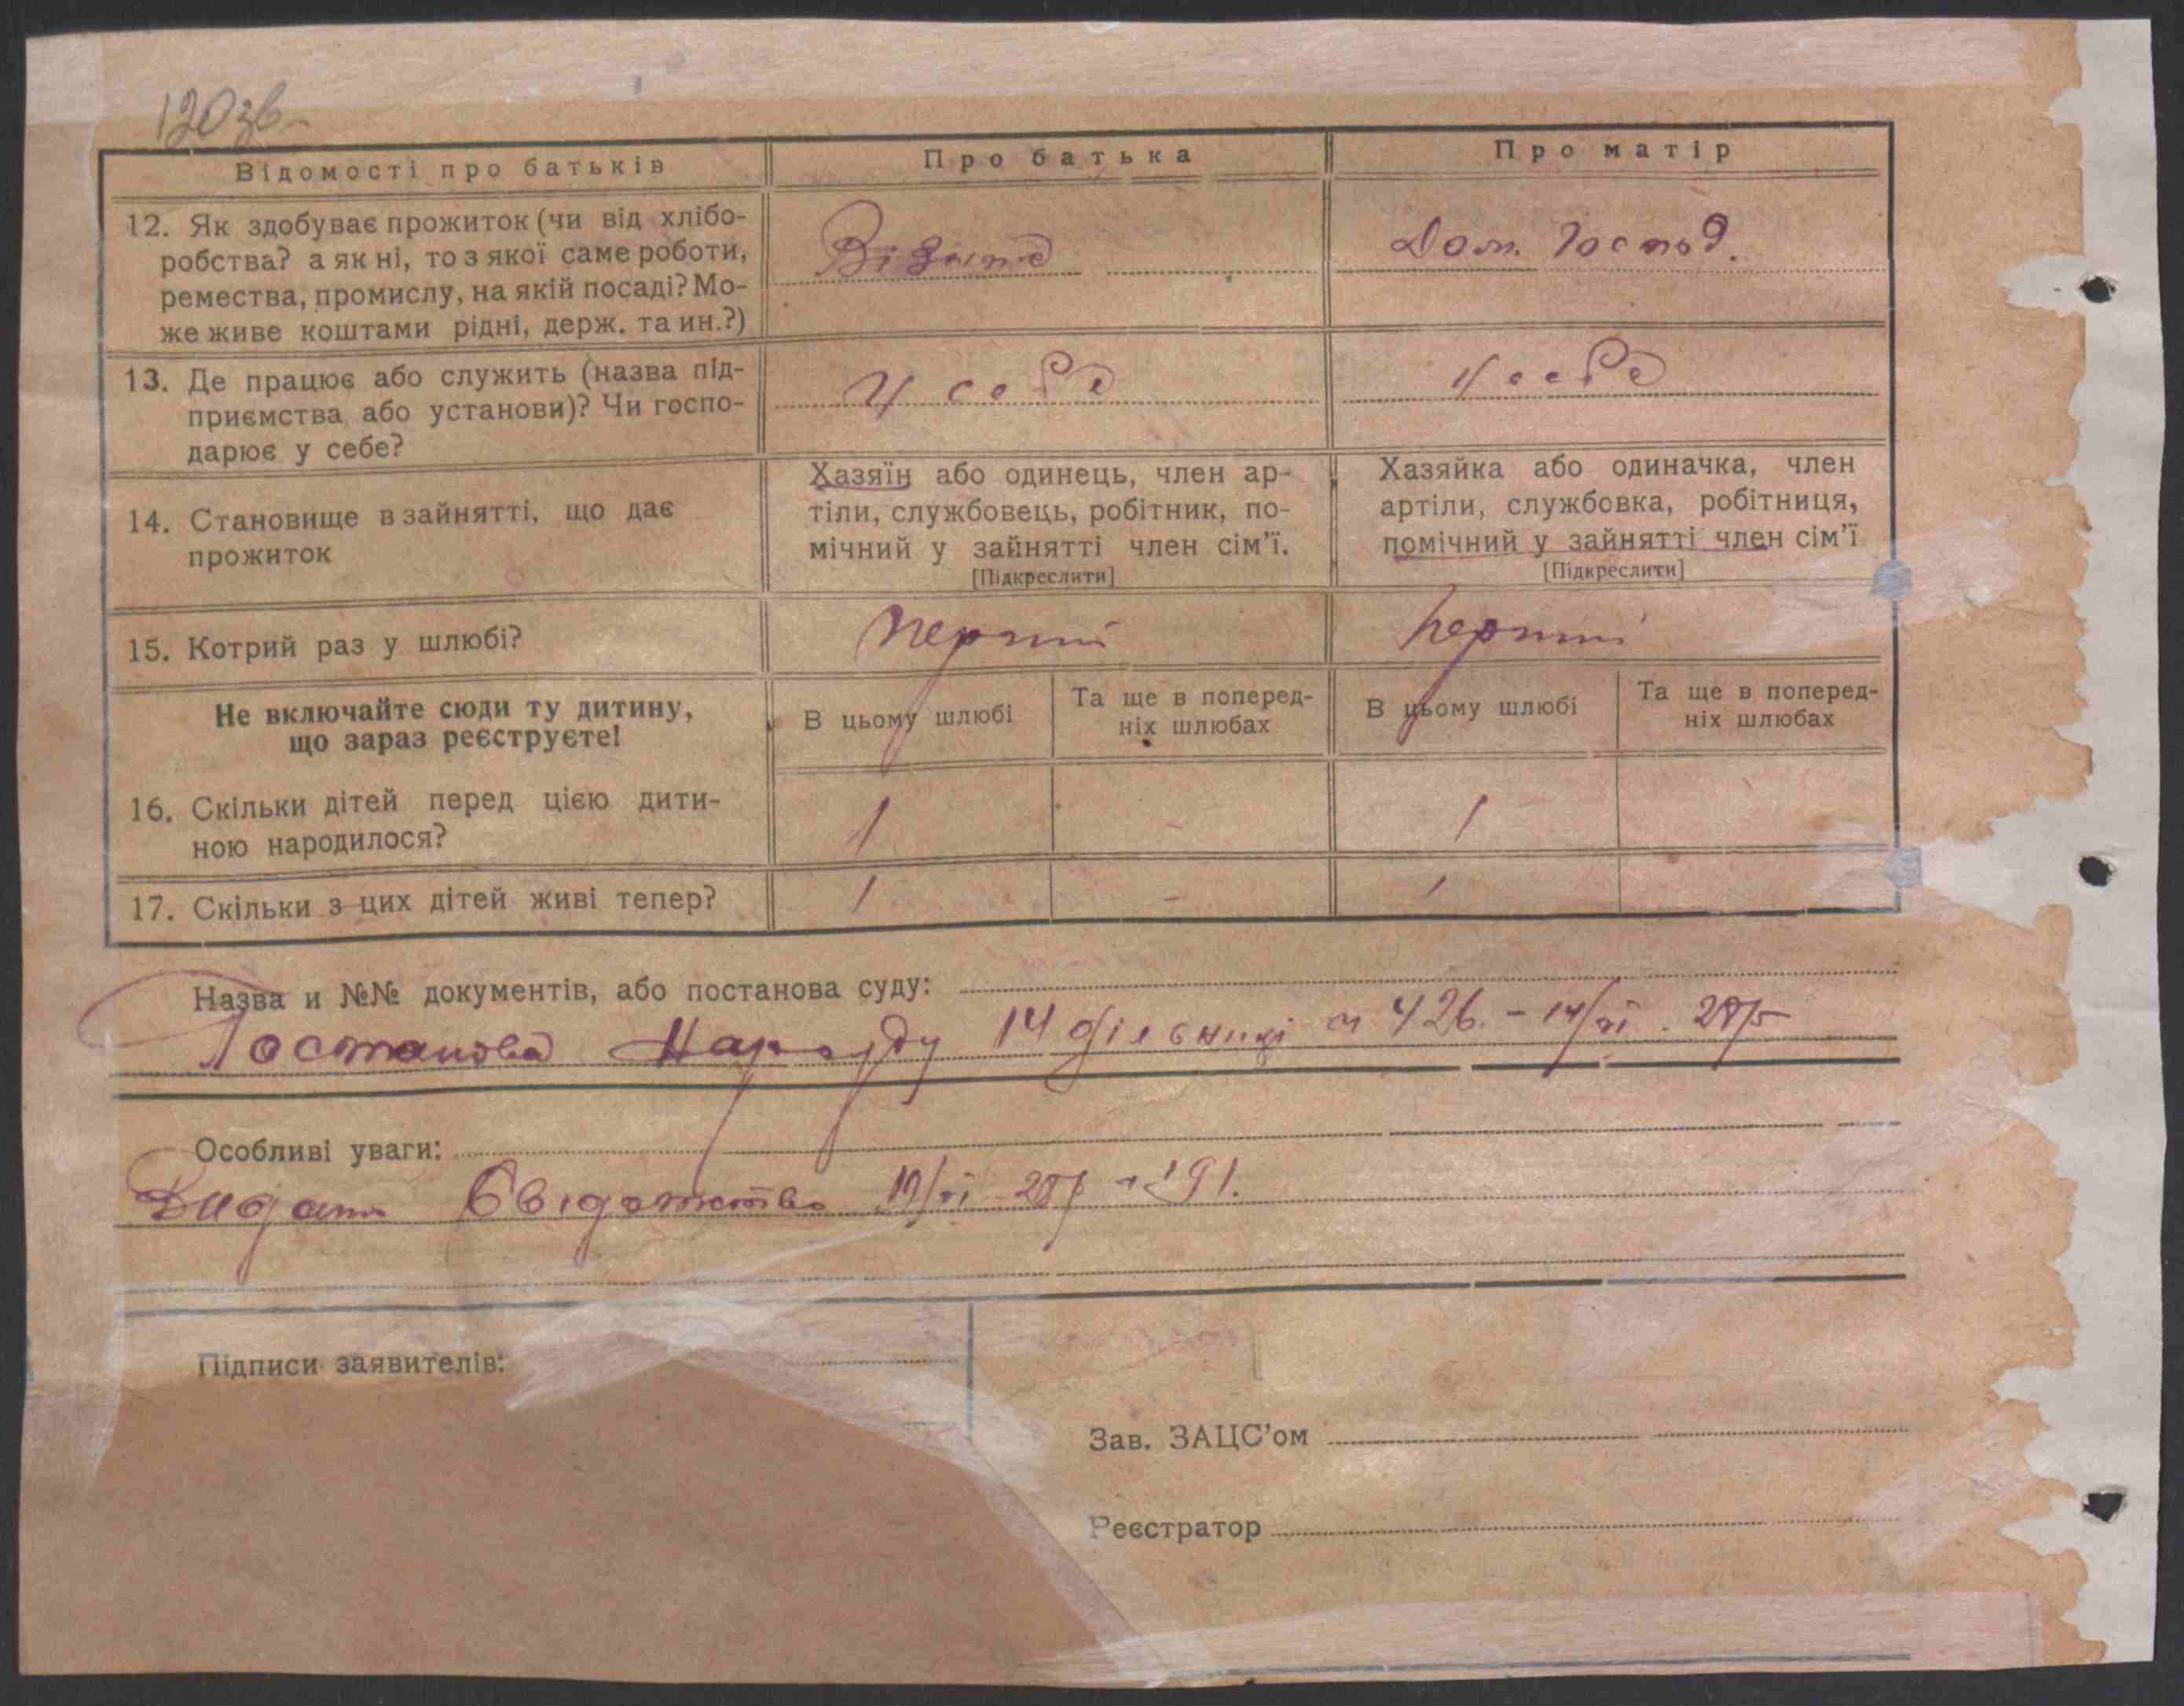 120 зв
Відомості про батьків
Про батька
Про матір
12. Як здобуває прожиток (чи від хлібо-
робства? а як ні, то з якої саме роботи,
ремества, промислу, на якій посаді? Мо-
же живе коштами рідні, держ. та ин.?)
Дом. Господ.
13. Де працює або служить (назва під-
приємства або установи)? Чи госпо-
дарює у себе?
У себе
У себе
14. Становище в зайнятті, що дає
прожиток
Хазяїн або одинець, член ар-
тіли, службовець, робітник, по-
мічний у зайнятті член сім'ї.
[Підкреслити]
Хазяйка або одиначка, член
артіли, службовка, робітниця,
помічний у зайнятті член сім'ї
[Підкреслити]
15. Котрий раз у шлюбі?
перший
перший
Не включайте сюди ту дитину,
що зараз реєструєте!
В цьому шлюбі
Та ще в поперед-
ніх шлюбах
В цьому шлюбі
Та ще в поперед-
ніх шлюбах
16. Скільки дітей перед цією дити-
ною народилося?
1
-
1
17. Скільки з цих дітей живі тепер?
1
-
1
Назва и №№ документів, або постанова суду:
Постанова Нарсуду 14 дільниці 426 - 14/XI
Особливі уваги:
Видано Свідоцтво 191.
Підписи заявителів:
Зав. ЗАЦС'ом
Реєстратор